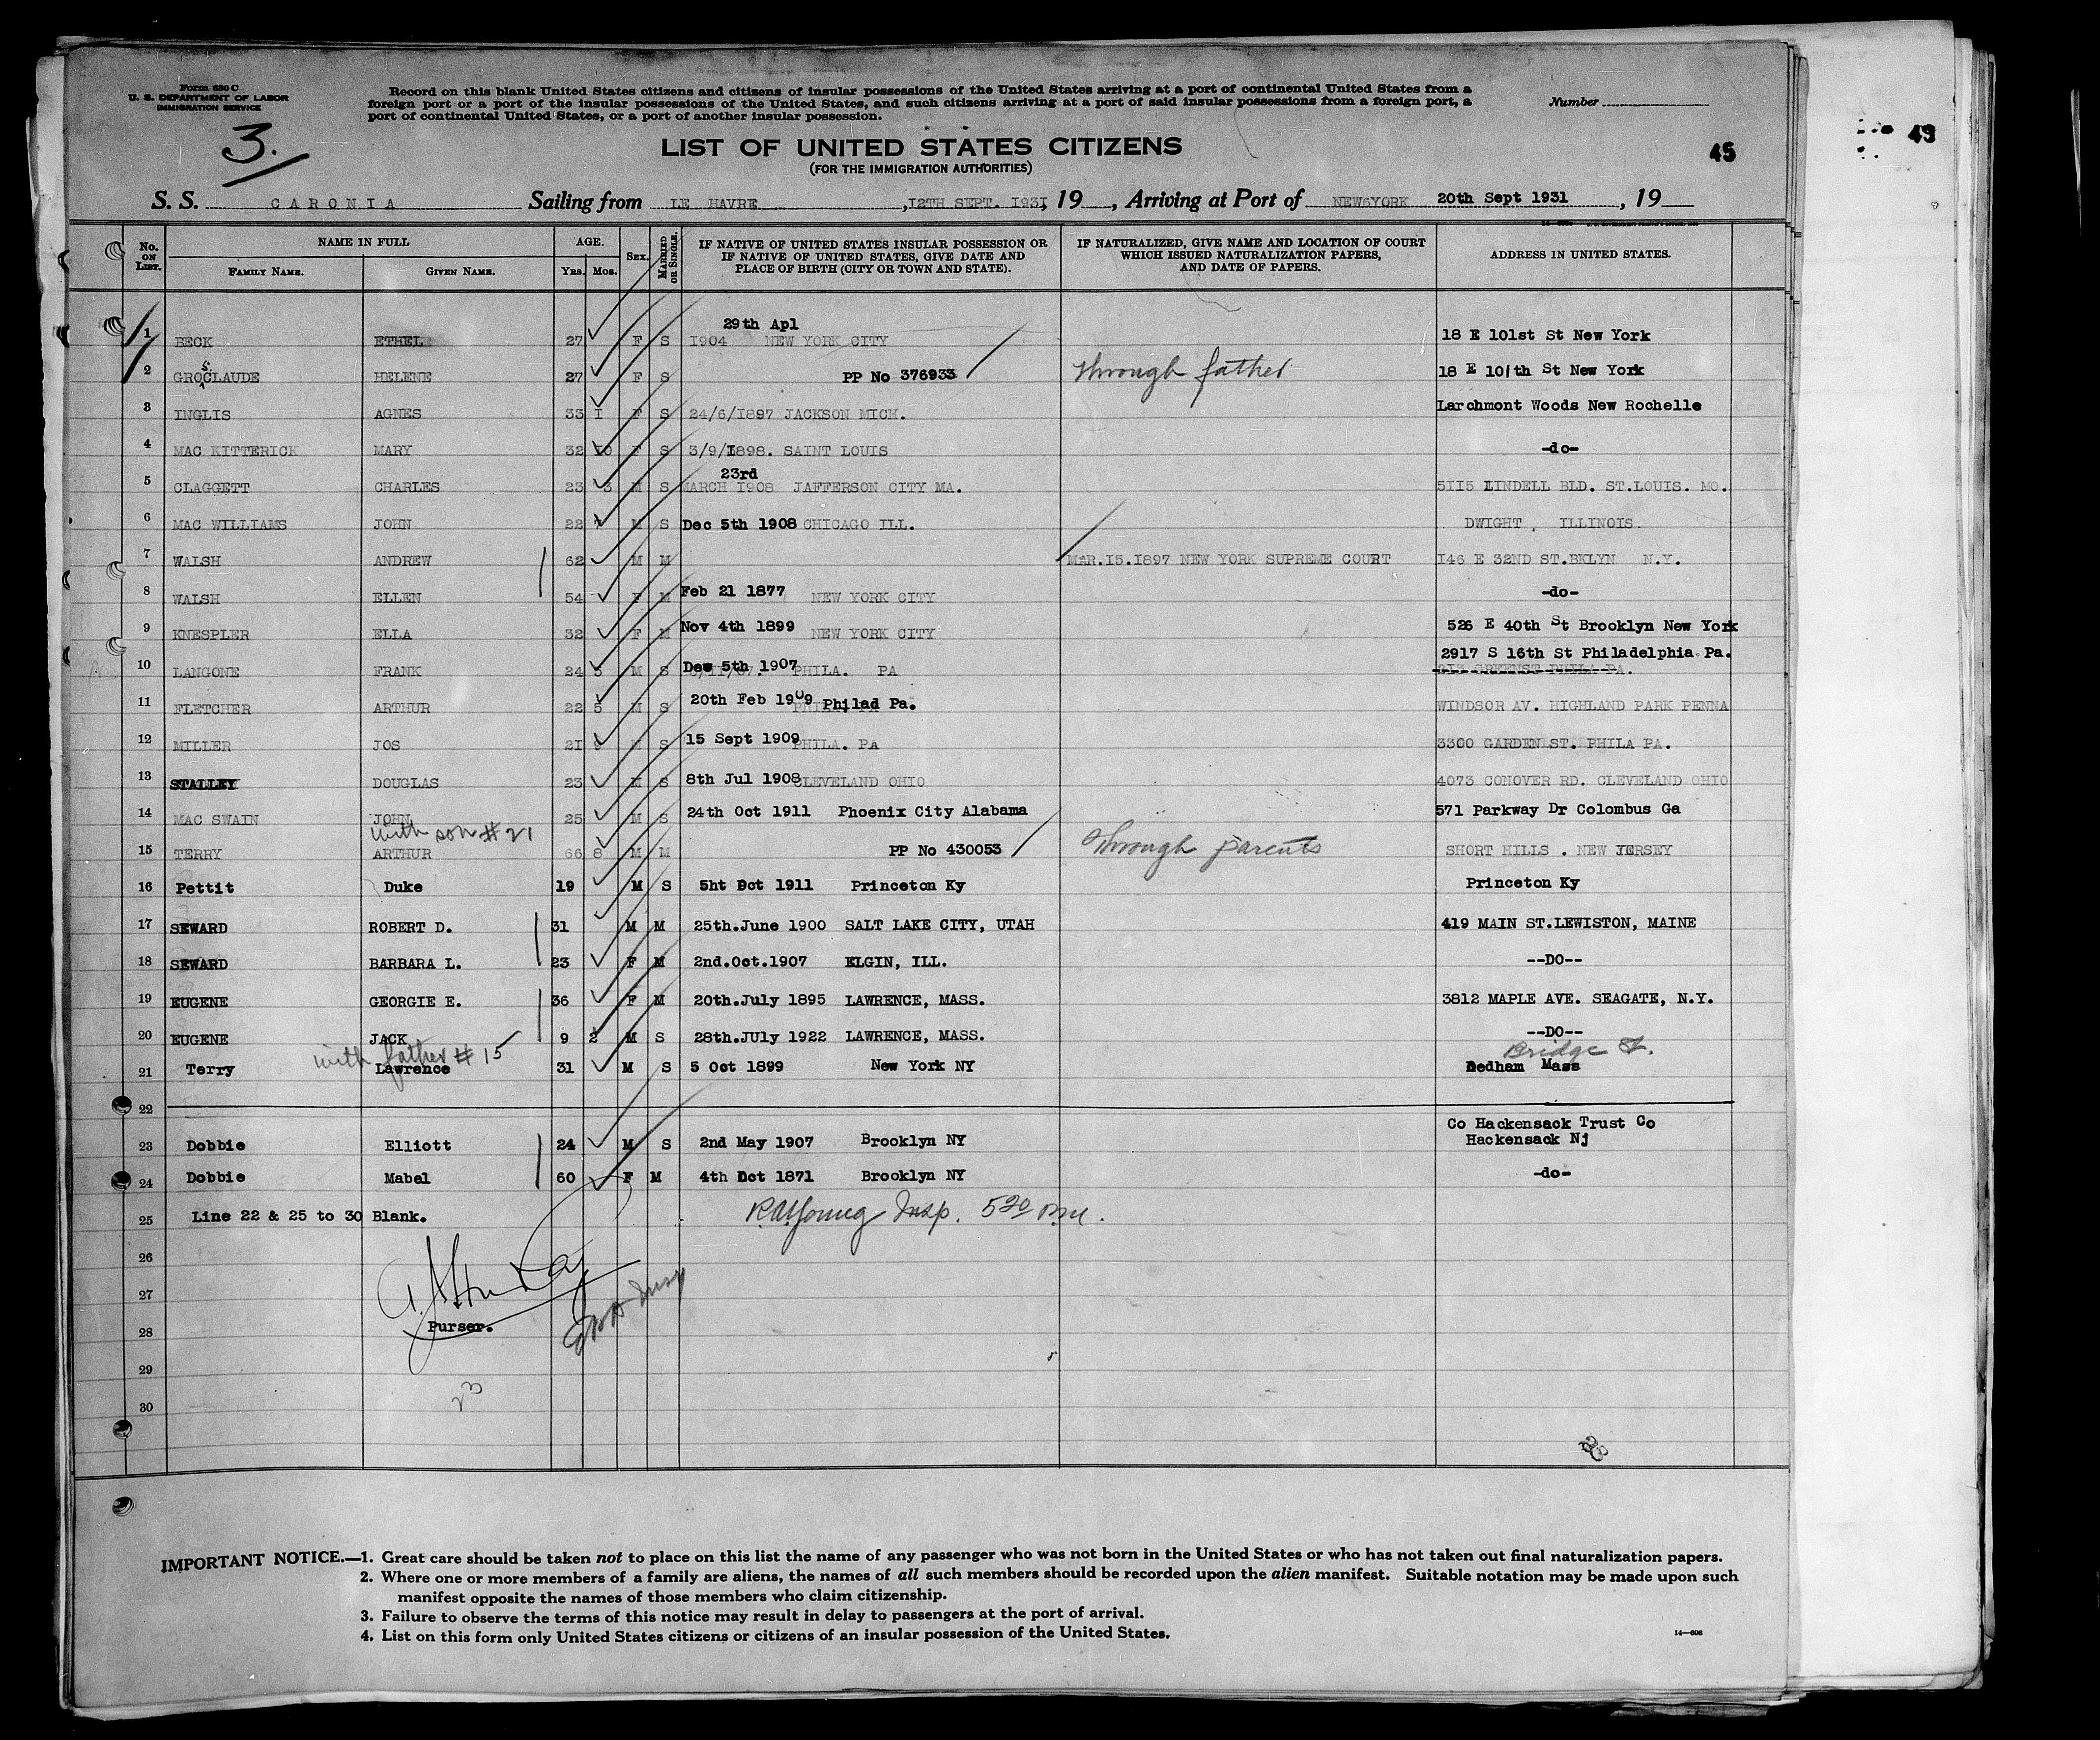 Form 630 C
U. S. DEPARTMENT OF LABOR
IMMIGRATION SERVICE
Record on this blank United States citizens and citizens of insular possessions of the United States arriving at a port of continental United States from a
foreign port or a port of the insular possessions of the United States, and such citizens arriving at a port of said insular possessions from a foreign port, a
port of continental United States, or a port of another insular possession.
Number
3.
45
43
LIST OF UNITED STATES CITIZENS
(FOR THE IMMIGRATION AUTHORITIES)
S. S. CARONIA Sailing from LE HAVRE, 12TH SEPT. 1931, 19 , Arriving at Port of NEW YORK 20th Sept 1931, 19
No. ON LIST. NAME IN FULL FAMILY NAME. GIVEN NAME. AGE. Yrs. Mos. SEX. MARRIED OR SINGLE. IF NATIVE OF UNITED STATES INSULAR POSSESSION OR IF NATIVE OF UNITED STATES, GIVE DATE AND PLACE OF BIRTH (CITY OR TOWN AND STATE). IF NATURALIZED, GIVE NAME AND LOCATION OF COURT WHICH ISSUED NATURALIZATION PAPERS, AND DATE OF PAPERS. ADDRESS IN UNITED STATES.
1 BECK ETHEL 27 F S 29th Apl 1904 NEW YORK CITY 18 E 101st St New York
2 GROSCLAUDE HELENE 27 F S PP No 376933 through father 18 E 101th St New York
3 INGLIS AGNES 33 1 F S 24/6/1897 JACKSON MICH. Larchmont Woods New Rochelle
4 MAC KITTERICK MARY 32 10 F S 3/9/1898. SAINT LOUIS -do-
5 CLAGGETT CHARLES 23 3 M S 23rd MARCH 1908 JAFFERSON CITY MA. 5115 LINDELL BLD. ST.LOUIS. MO.
6 MAC WILLIAMS JOHN 22 M S Dec 5th 1908 CHICAGO ILL. DWIGHT , ILLINOIS.
7 WALSH ANDREW 62 M M MAR.15.1897 NEW YORK SUPREME COURT 146 E 32ND ST.BKLYN N.Y.
8 WALSH ELLEN 54 F M Feb 21 1877 NEW YORK CITY -do-
9 KNESPLER ELLA 32 F M Nov 4th 1899 NEW YORK CITY 526 E 40th St Brooklyn New York
10 LANGONE FRANK 24 3 M S Dec 5th 1907 PHILA. PA 2917 S 16th St Philadelphia Pa.
11 FLETCHER ARTHUR 22 5 M S 20th Feb 1909 Philad Pa. WINDSOR AV. HIGHLAND PARK PENNA
12 MILLER JOS 21 M S 15 Sept 1909 PHILA. PA 3300 GARDEN ST. PHILA PA.
13 STALLEY DOUGLAS 23 M S 8th Jul 1908 CLEVELAND OHIO 4073 CONOVER RD. CLEVELAND OHIO
14 MAC SWAIN JOHN 25 M S 24th Oct 1911 Phoenix City Alabama 571 Parkway Dr Colombus Ga
with son #21
15 TERRY ARTHUR 66 8 M M PP No 430053 through parents SHORT HILLS . NEW JERSEY
16 Pettit Duke 19 M S 5ht Oct 1911 Princeton Ky Princeton Ky
17 SEWARD ROBERT D. 31 M M 25th.June 1900 SALT LAKE CITY, UTAH 419 MAIN ST.LEWISTON, MAINE
18 SEWARD BARBARA L. 23 F M 2nd.Oct.1907 ELGIN, ILL. --DO--
19 EUGENE GEORGIE E. 36 F M 20th.July 1895 LAWRENCE, MASS. 3812 MAPLE AVE. SEAGATE, N.Y.
20 EUGENE JACK 9 2 M S 28th.JUly 1922 LAWRENCE, MASS. --DO--
with father #15 Bridge St.
21 Terry Lawrence 31 M S 5 Oct 1899 New York NY Dedham Mass
22
23 Dobbie Elliott 24 M S 2nd May 1907 Brooklyn NY Co Hackensack Trust Co Hackensack Nj
24 Dobbie Mabel 60 F M 4th Oct 1871 Brooklyn NY -do-
25 Line 22 & 25 to 30 Blank. Insp. 520 pm.
26
27
28 Purser.
29
30
23
IMPORTANT NOTICE.—1. Great care should be taken not to place on this list the name of any passenger who was not born in the United States or who has not taken out final naturalization papers.
2. Where one or more members of a family are aliens, the names of all such members should be recorded upon the alien manifest. Suitable notation may be made upon such
manifest opposite the names of those members who claim citizenship.
3. Failure to observe the terms of this notice may result in delay to passengers at the port of arrival.
4. List on this form only United States citizens or citizens of an insular possession of the United States.
14—606